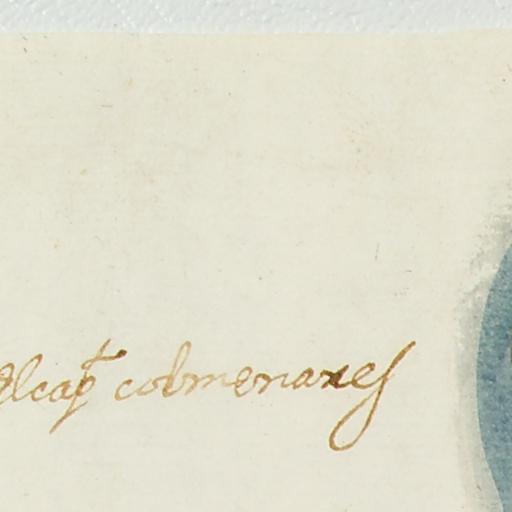 el cap^t colmenares